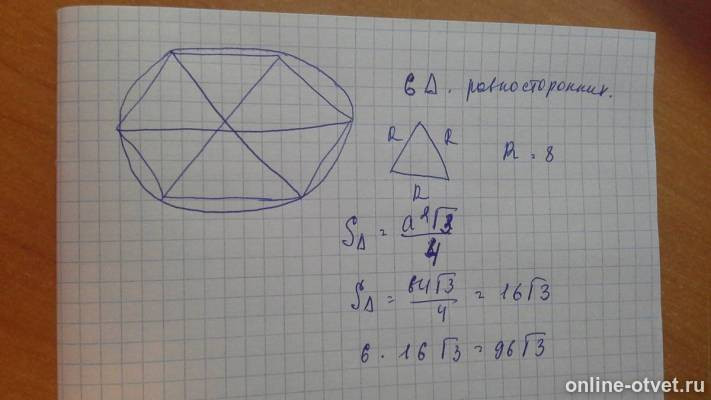 6 Δ. равносторонних.
R R R
R = 8
S_Δ = a²√3/4
S_Δ = 64√3/4 = 16√3
6 · 16√3 = 96√3
online-otvet.ru